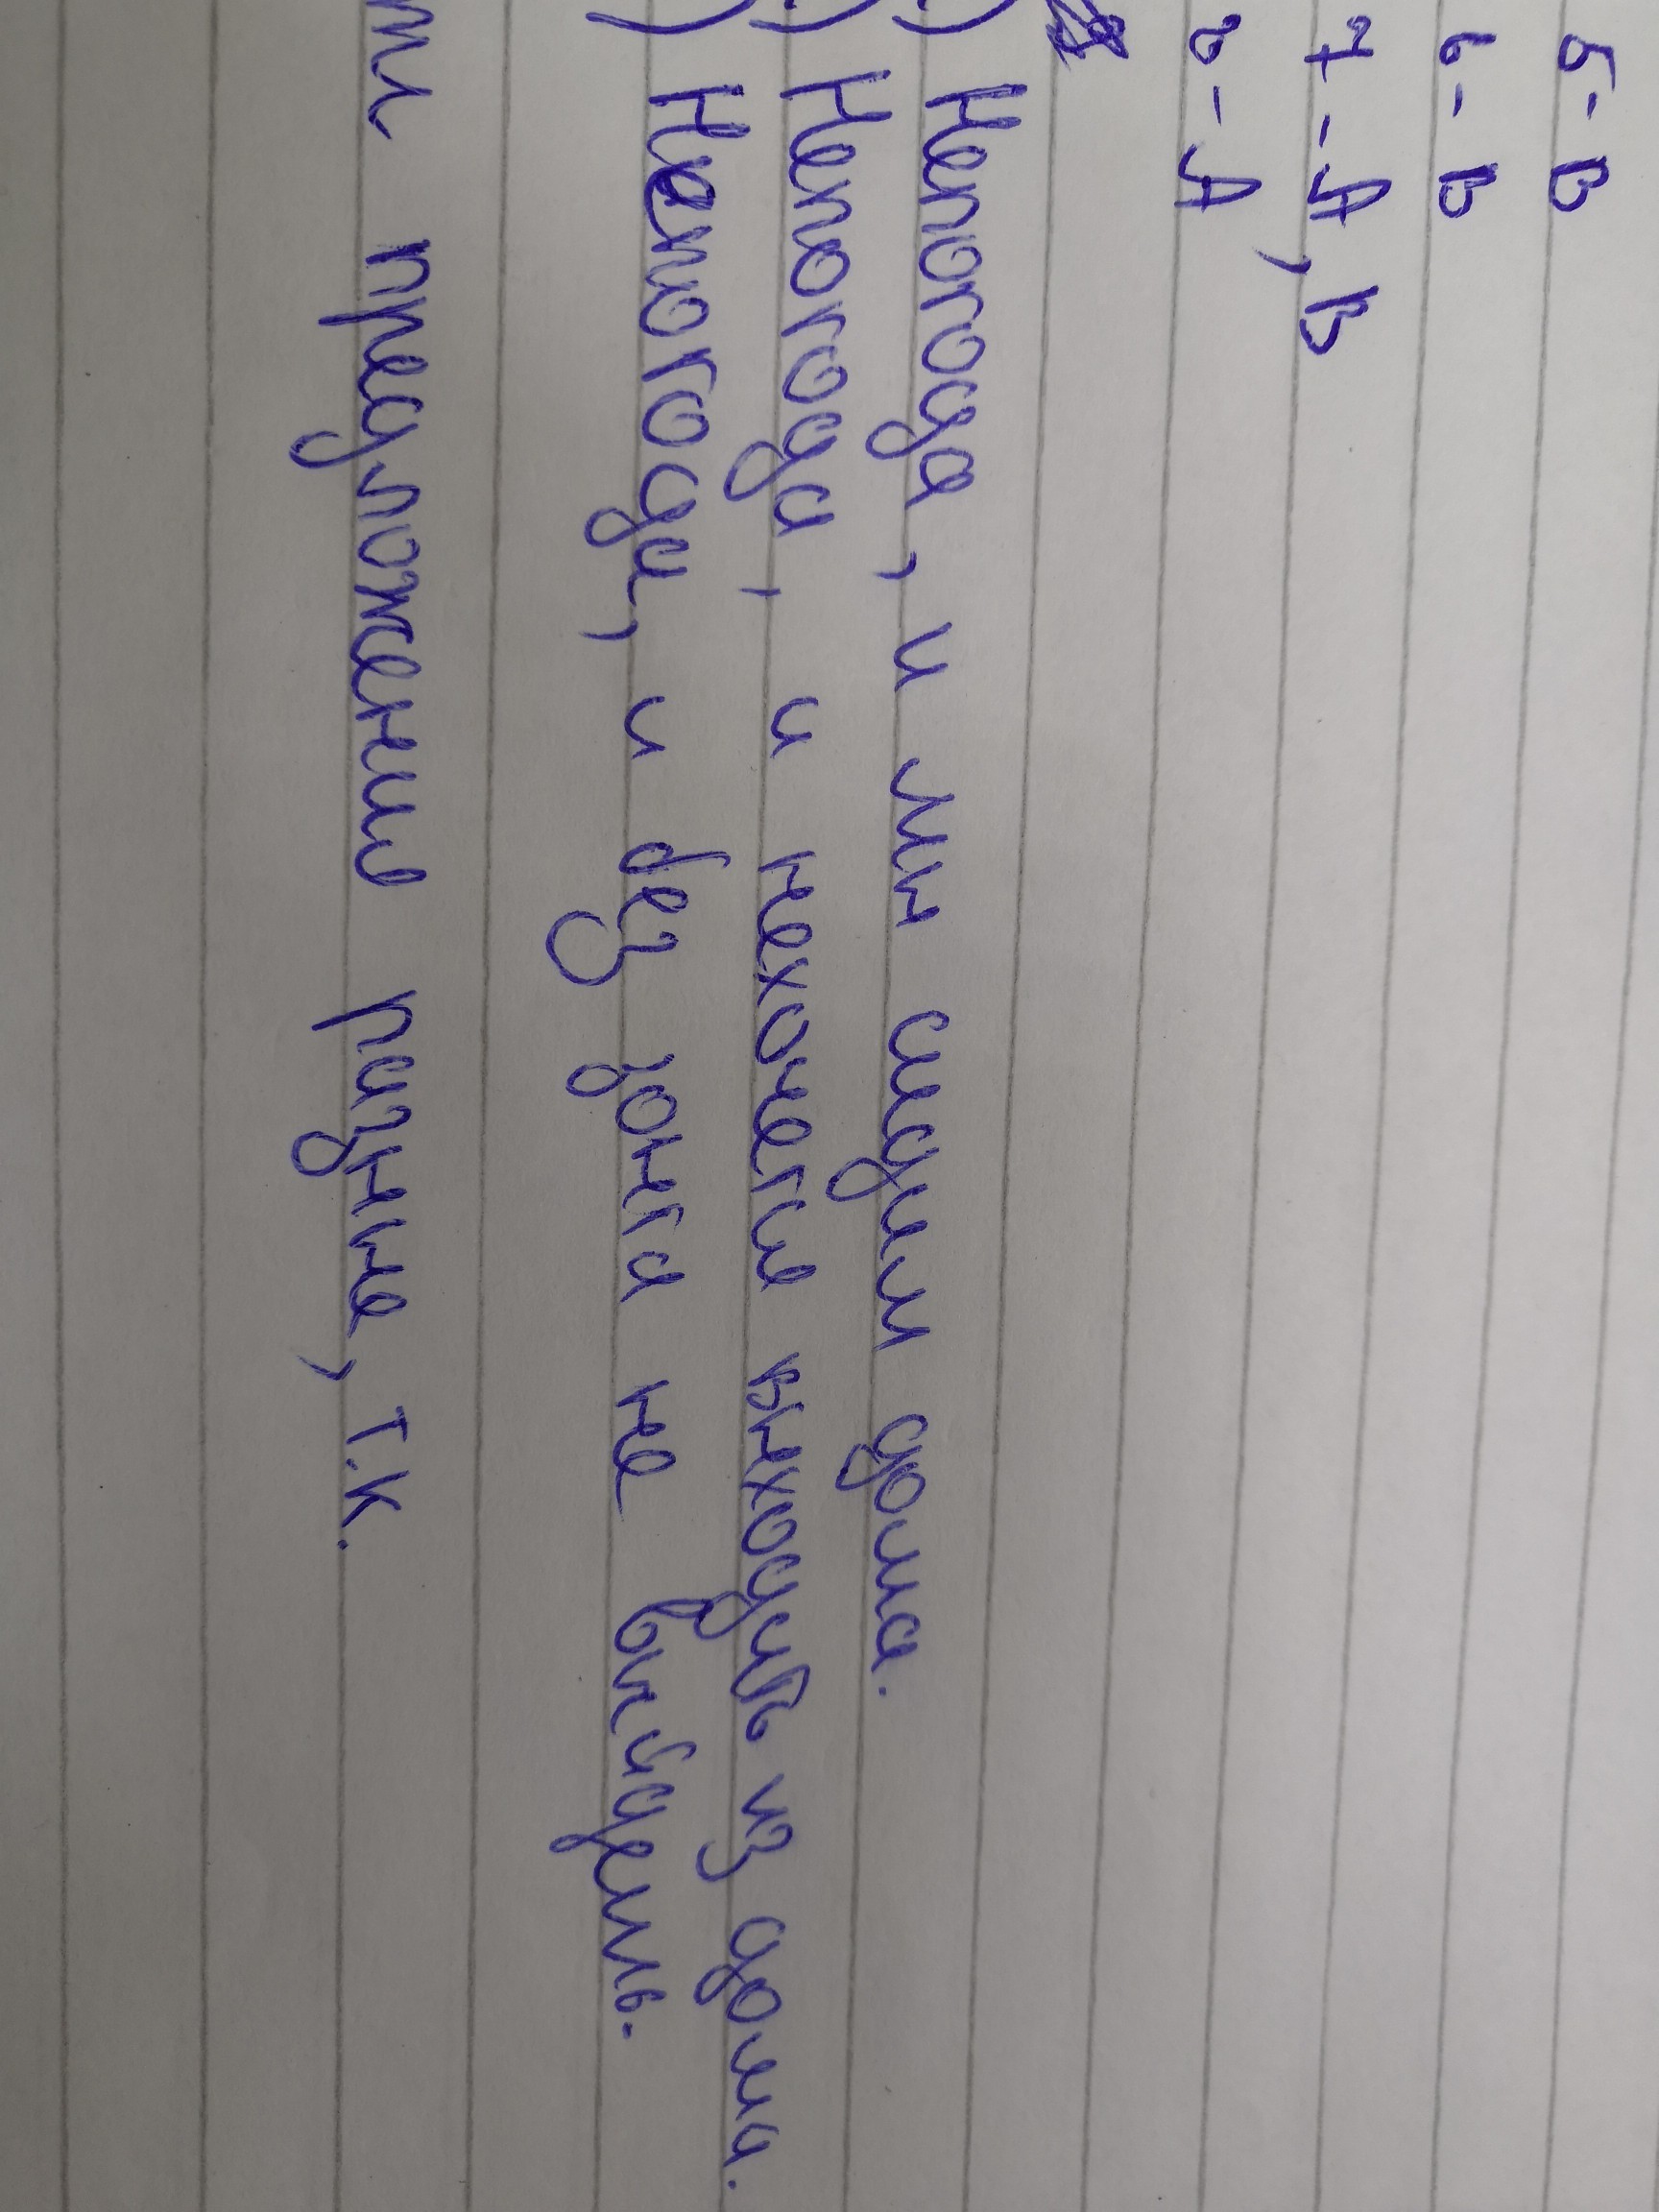 5-В
6-В
7-А,В
8-А
) Непогода, и мы сидим дома.
) Непогода, и нехочется выходить из дома.
) Непогода, и без зонта не выйдешь.
эти предложение разные, т.к.